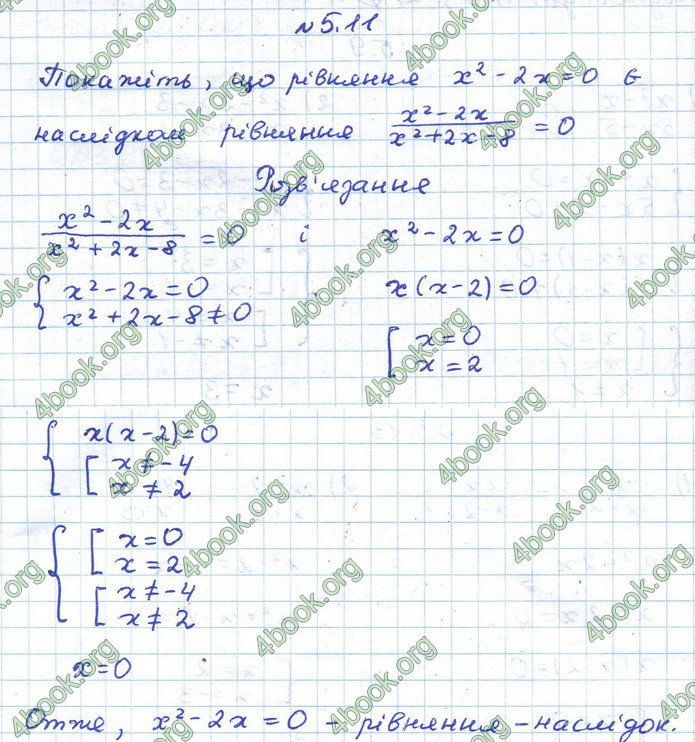 №5.11
Покажіть, що рівняння x² - 2x = 0 є
наслідком рівняння (x² - 2x)/(x² + 2x - 8) = 0
Розв'язання
(x² - 2x)/(x² + 2x - 8) = 0 і x² - 2x = 0
{ x² - 2x = 0 x(x - 2) = 0
x² + 2x - 8 ≠ 0
[ x = 0
x = 2
{ x(x - 2) = 0
[ x ≠ -4
x ≠ 2
{ [ x = 0
x = 2
[ x ≠ -4
x ≠ 2
x = 0
Отже, x² - 2x = 0 - рівняння - наслідок.
4book.org